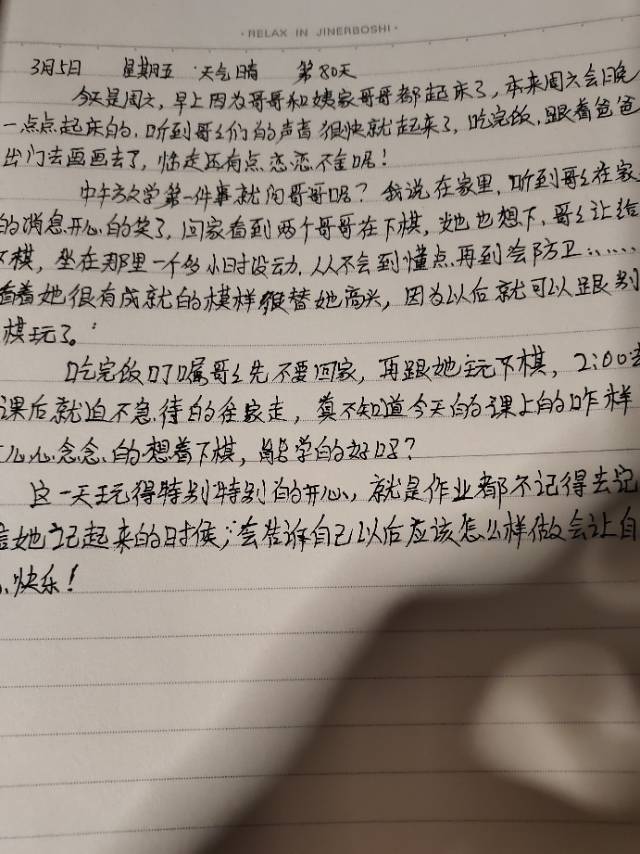 · RELAX IN JINERBOSHI ·
3月5日 星期五 天气晴 第80天
今天是周六，早上因为哥哥和姨家哥哥都起床了，本来周六会晚
一点点起床的，听到哥哥们的声音很快就起来了，吃完饭，跟着爸爸
出门去画画去了，临走还有点恋恋不舍呢！
中午放学第一件事就问哥哥呢？我说在家里，听到哥哥在家
的消息开心的笑了，回家看到两个哥哥在下棋，她也想下，哥哥让给
下棋，坐在那里一个多小时没动，从不会到懂点再到会防卫……
看着她很有成就的模样很替她高兴，因为以后就可以跟别
棋玩了。
吃完饭叮嘱哥哥先不要回家，再跟她玩下棋，2:00去
课后就迫不急待的往家走，真不知道今天的课上的咋样
心心念念的想着下棋，能学的好吗？
这一天玩得特别特别的开心，就是作业都不记得去记
信她记起来的时候，会告诉自己以后应该怎么样做会让自
快乐！